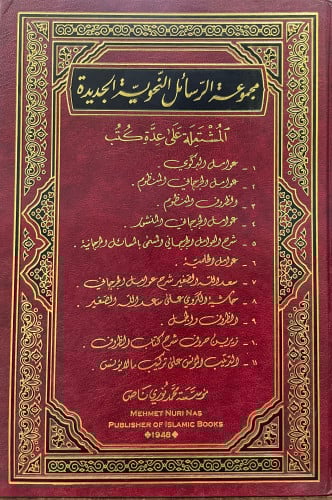 مجموعة الرسائل النحوية الجديدة
المشتملة على عدة كتب
١ - عوامل البركوي .
٢ - عوامل الجرجاني المنظوم .
٣ - الظروف المنظوم .
٤ - عوامل الجرجاني المنثور .
٥ - شرح العوامل الجرجاني المسمى بالمسائل والرجائية .
٦ - عوامل
٧ - سعد الله الصغير شرح عوامل الجرجاني .
٨ - حاشية على سعد الله الصغير .
٩ - الظروف والجمل .
١٠ - شرح كتاب الظروف .
١١ - التركيب على تركيب ملا يونس
مؤسسة محمد نوري ناص
MEHMET NURI NAS
PUBLISHER OF ISLAMIC BOOKS
1948